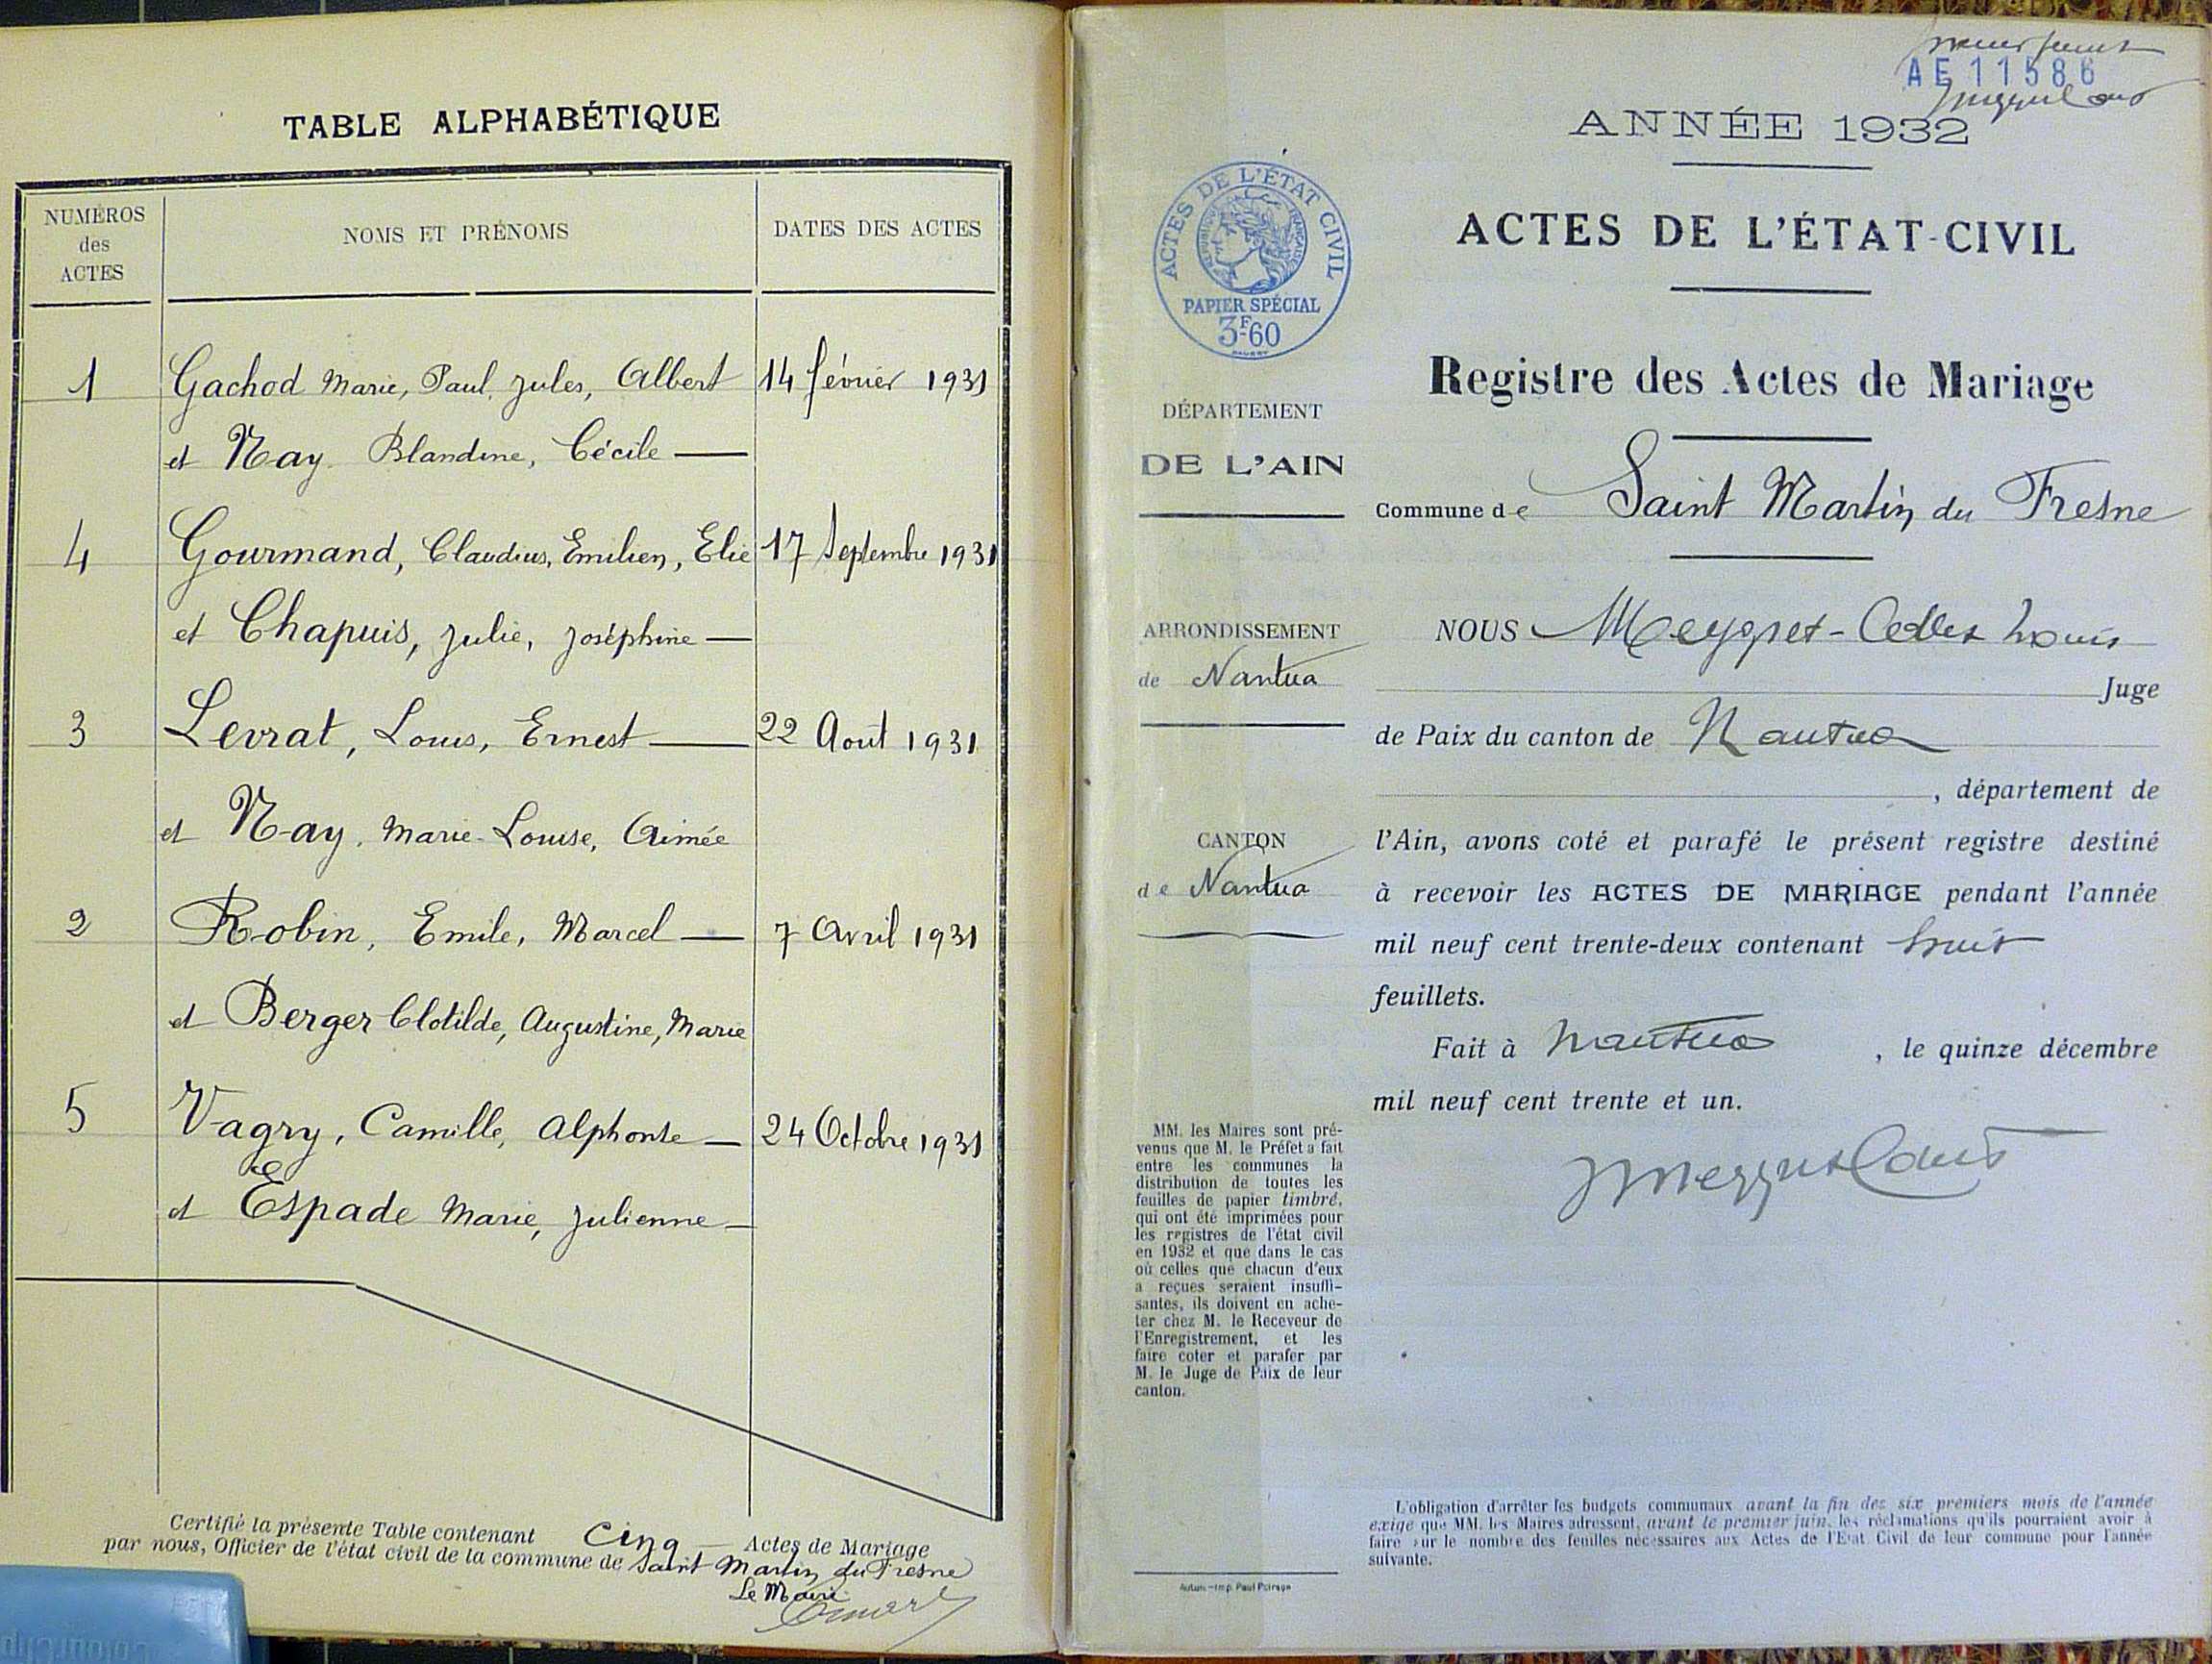 TABLE ALPHABÉTIQUE
NUMÉROS
des
ACTES
NOMS ET PRÉNOMS
DATES DES ACTES
1 Gachod Marie, Paul, Jules, Albert 14 février 1931
et Nay Blandine, Cécile
4 Gourmand, Claudius, Emilien, Elie 17 Septembre 1931
et Chapuis, Julie, Joséphine
3 Levrat, Louis, Ernest 22 Aout 1931
et Nay, Marie-Louise, Aimée
2 Robin, Emile, Marcel 7 Avril 1931
et Berger Clotilde, Augustine, Marie
5 Vagry, Camille, Alphonse 24 Octobre 1931
et Espade Marie, Julienne
Certifié la présente Table contenant Cinq Actes de Mariage
par nous, Officier de l'état civil de la commune de Saint Martin du Fresne
Le Maire
AE11586
ANNÉE 1932
ACTES DE L'ÉTAT-CIVIL
Registre des Actes de Mariage
Commune de Saint Martin du Fresne
ACTES DE L'ÉTAT CIVIL
RÉPUBLIQUE FRANÇAISE
PAPIER SPÉCIAL
3F60
DÉPARTEMENT
DE L'AIN
ARRONDISSEMENT
de Nantua
CANTON
de Nantua
MM. les Maires sont pré-
venus que M. le Préfet a fait
entre les communes la
distribution de toutes les
feuilles de papier timbré,
qui ont été imprimées pour
les registres de l'état civil
en 1932 et que dans le cas
où celles que chacun d'eux
a reçues seraient insuffi-
santes, ils doivent en ache-
ter chez M. le Receveur de
l'Enregistrement, et les
faire coter et parafer par
M. le Juge de Paix de leur
canton.
NOUS Louis
Juge
de Paix du canton de Nantua
, département de
l'Ain, avons coté et parafé le présent registre destiné
à recevoir les ACTES DE MARIAGE pendant l'année
mil neuf cent trente-deux contenant huit
feuillets.
Fait à Nantua, le quinze décembre
mil neuf cent trente et un.
L'obligation d'arrêter les budgets communaux avant la fin des six premiers mois de l'année
exige que MM. les Maires adressent, avant le premier juin, les réclamations qu'ils pourraient avoir à
faire sur le nombre des feuilles nécessaires aux Actes de l'Etat Civil de leur commune pour l'année
suivante.
Autun.—Imp. Paul